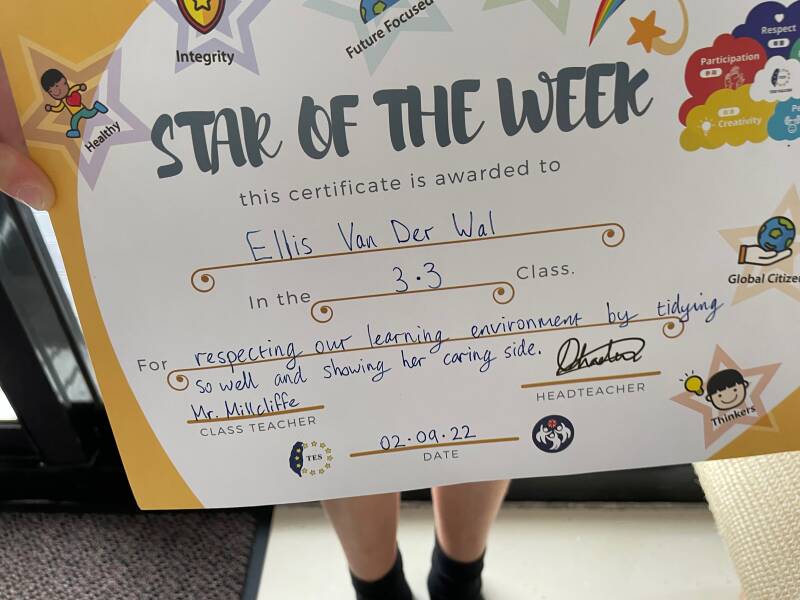 Integrity
Future Focused
Respect
Participation
Creativity
Healthy
STAR OF THE WEEK
this certificate is awarded to
Ellis Van Der Wal
In the 3.3 Class.
Global Citizen
For respecting our learning environment by tidying
so well and showing her caring side.
Mr. Millcliffe
CLASS TEACHER
HEADTEACHER
Thinkers
TES
02.09.22
DATE